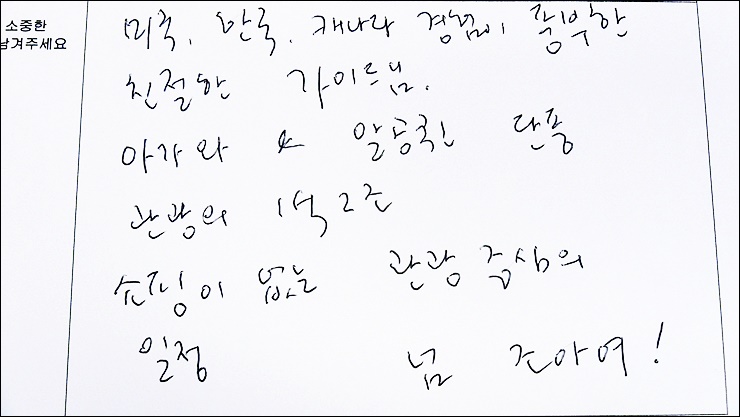 소중한
남겨주세요
미국, 한국, 캐나다 경험이 풍부한
친절한 가이드님.
아가와 & 알공퀸 단풍
관광의 1석2조
쇼핑이 없는 관광 중심의
일정 넘 조아여!